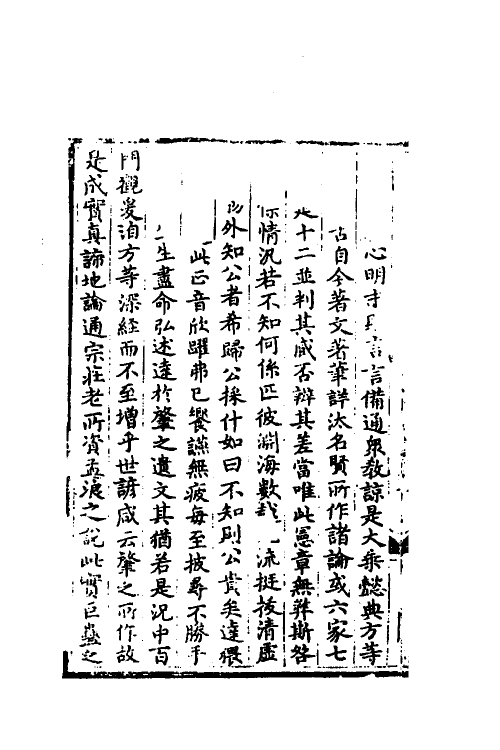 心明才言言備通衆敎諒是大乘懿典方等
古自今著文著筆詳汰名賢所作諸論或六家七
十二並判其臧否辯其差當唯此憲章無弊斯咎
情況若不知何係叵彼淵海數越九流挺拔清虛
外知公者希歸公採什如曰不知則公貴矣達猥
此正音欣躍弗已饗讌無疲每至披尋不勝手
生盡命弘述達於肇之遺文其猶若是況中百
門觀爰洎方等深經而不至增乎世諺咸云肇之所作故
是成實真諦地論通宗莊老所資孟浪之說此實巨蠱之